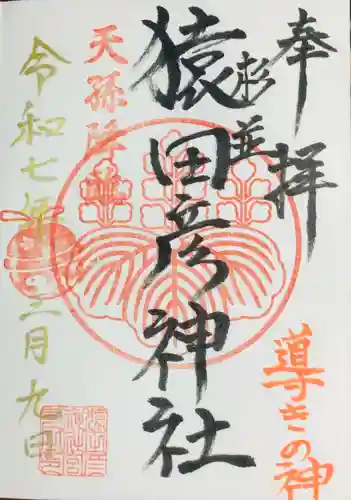 奉拝
導きの神
杉並
猿田彦神社
天孫降臨
令和七年三月九日